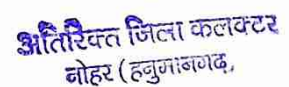 अतिरिक्त जिला कलक्टर
नोहर (हनुमानगढ़,